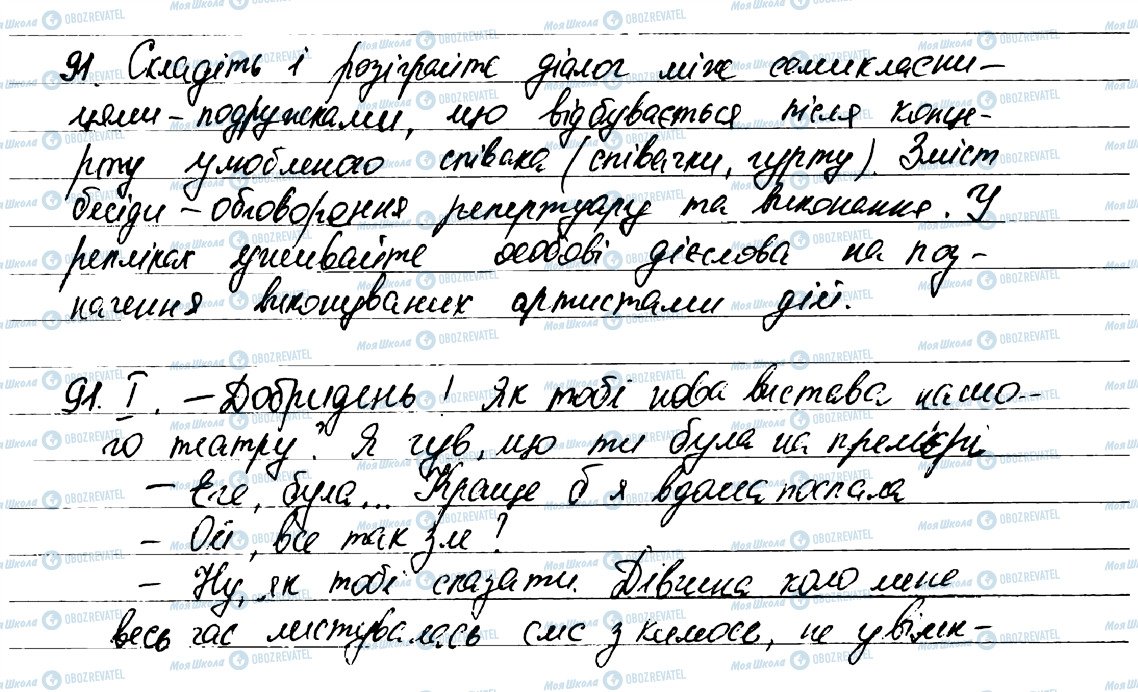 91. Складіть і розіграйте діалог між семикласни-
цями-подружками, що відбувається після конце-
рту улюбленого співака (співачки, гурту). Зміст
бесіди - обговорення репертуару та виконання. У
репліках уживайте особові дієслова на поз-
начення виконуваних артистами дій.
91. I. - Добридень! Як тобі нова вистава нашо-
го театру? Я чув, що ти була на прем'єрі
- Еге, була... Краще б я вдома поспала
- Ой, все так зле?
- Ну, як тобі сказати. Дівчина коло мене
весь час листувалась смс з кимось, не увімк-